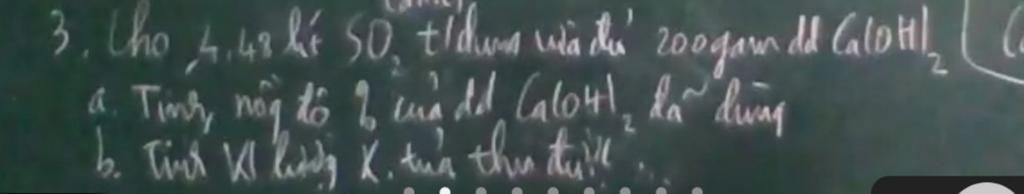 3. Cho 4,48 lít SO₂ t/dụng vừa đủ 200gam dd Ca(OH)₂
a. Tính nồng độ % của dd Ca(OH)₂ đã dùng
b. Tính Kl lượng K. tủa thu được...